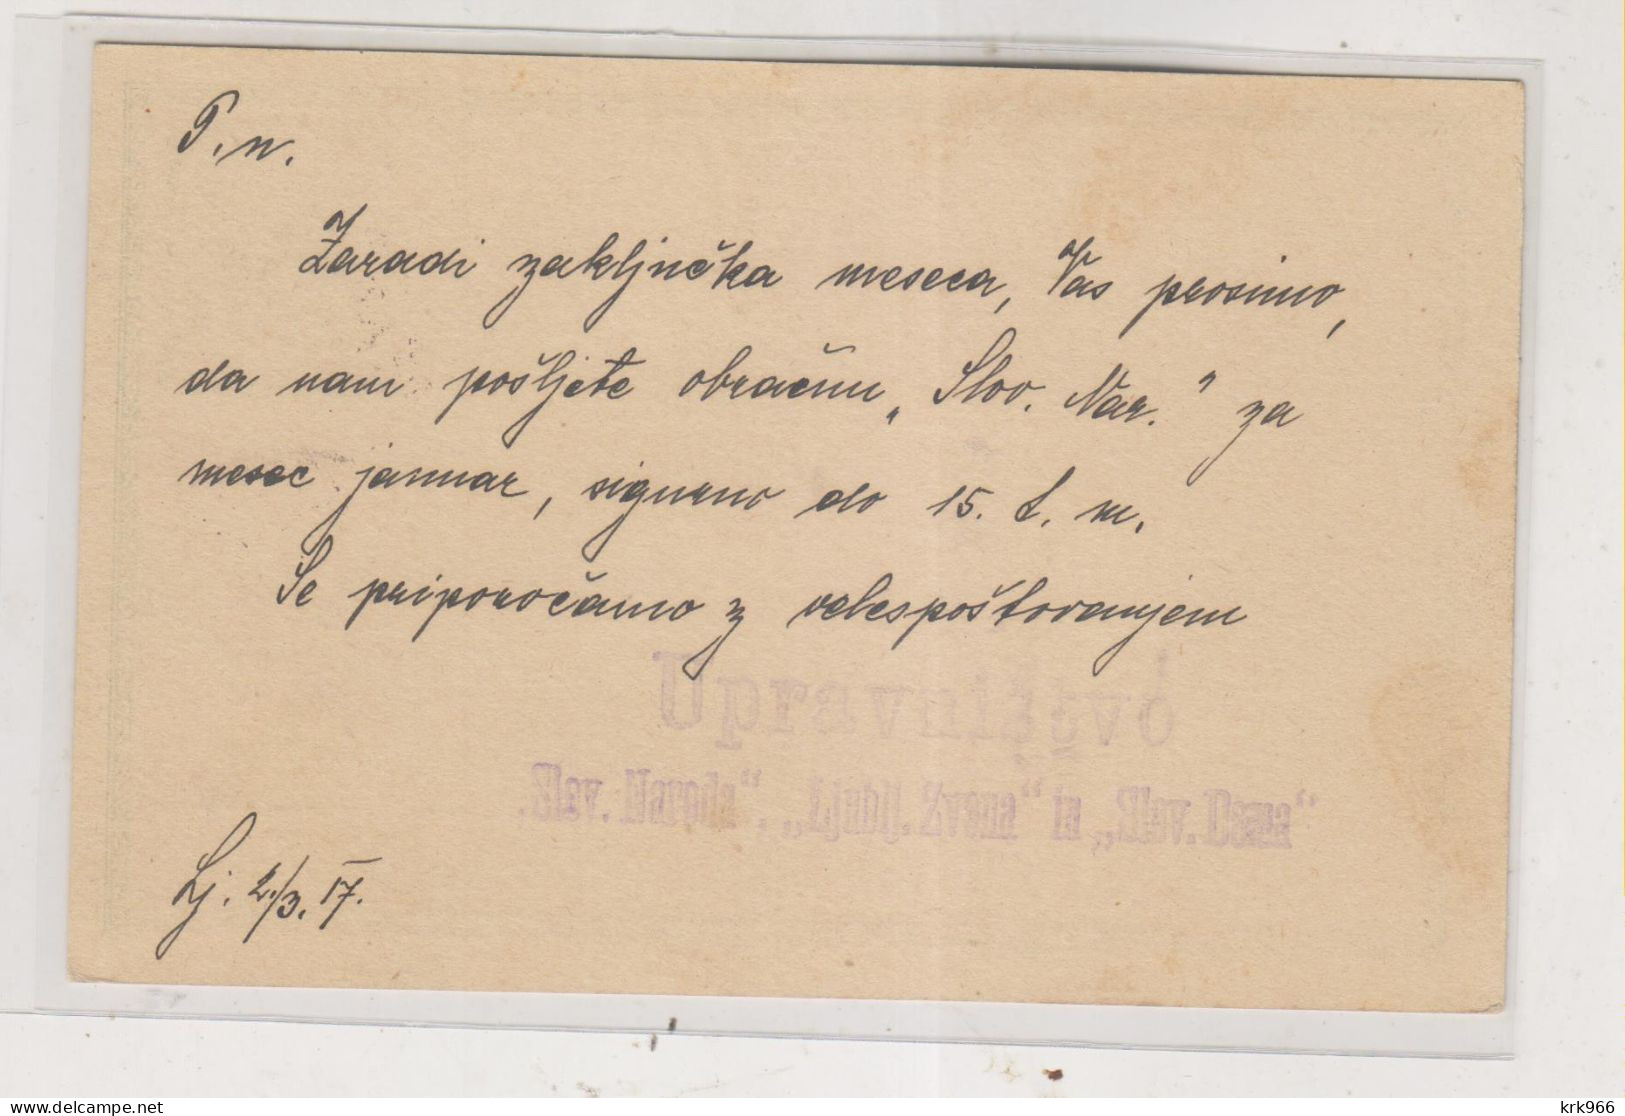 P. n.
Zaradi zaključka meseca, Vas prosimo,
da nam pošljete obračun „Slov. Nar.” za
mesec januar, sigurno do 15. t. m.
Se priporočamo z velespoštovanjem
Upravništvo
„Slov. Naroda“, „Ljublj. Zvona“ in „Slov. Doma“
Lj. 2./3. 17.
krk966